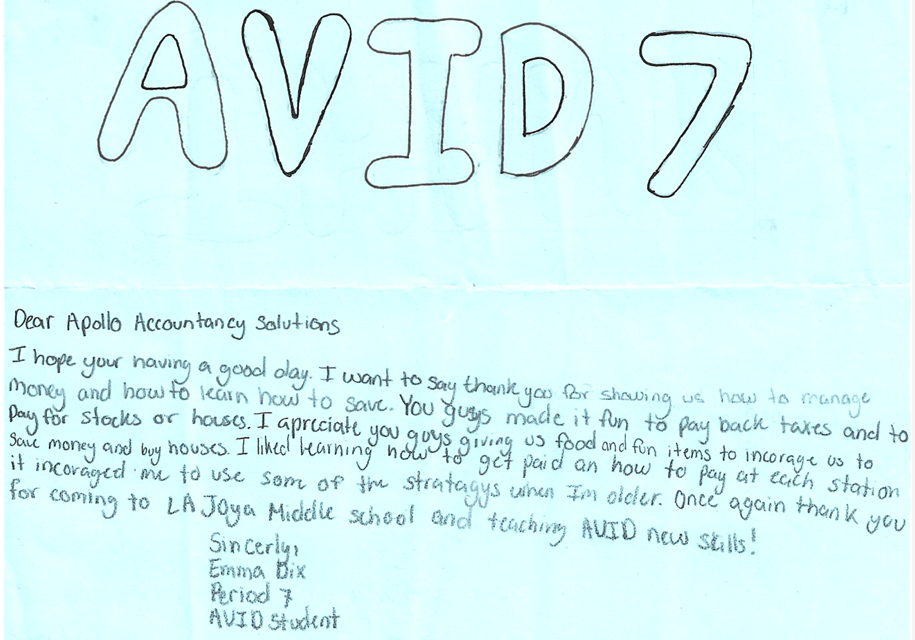 AVID 7
Dear Apollo Accountancy Solutions
I hope your having a good day. I want to say thank you for showing us how to manage
money and how to learn how to save. You guys made it fun to pay back taxes and to
pay for stocks or houses. I apreciate you guys giving us food and fun items to incorage us to
save money and buy houses. I liked learning how to get paid an how to pay at each station
it incoraged me to use some of the stratagys when I'm older. Once again thank you
for coming to LA Joya Middle school and teaching AVID new skills!
Sincerly,
Emma Dix
Period 7
AVID student